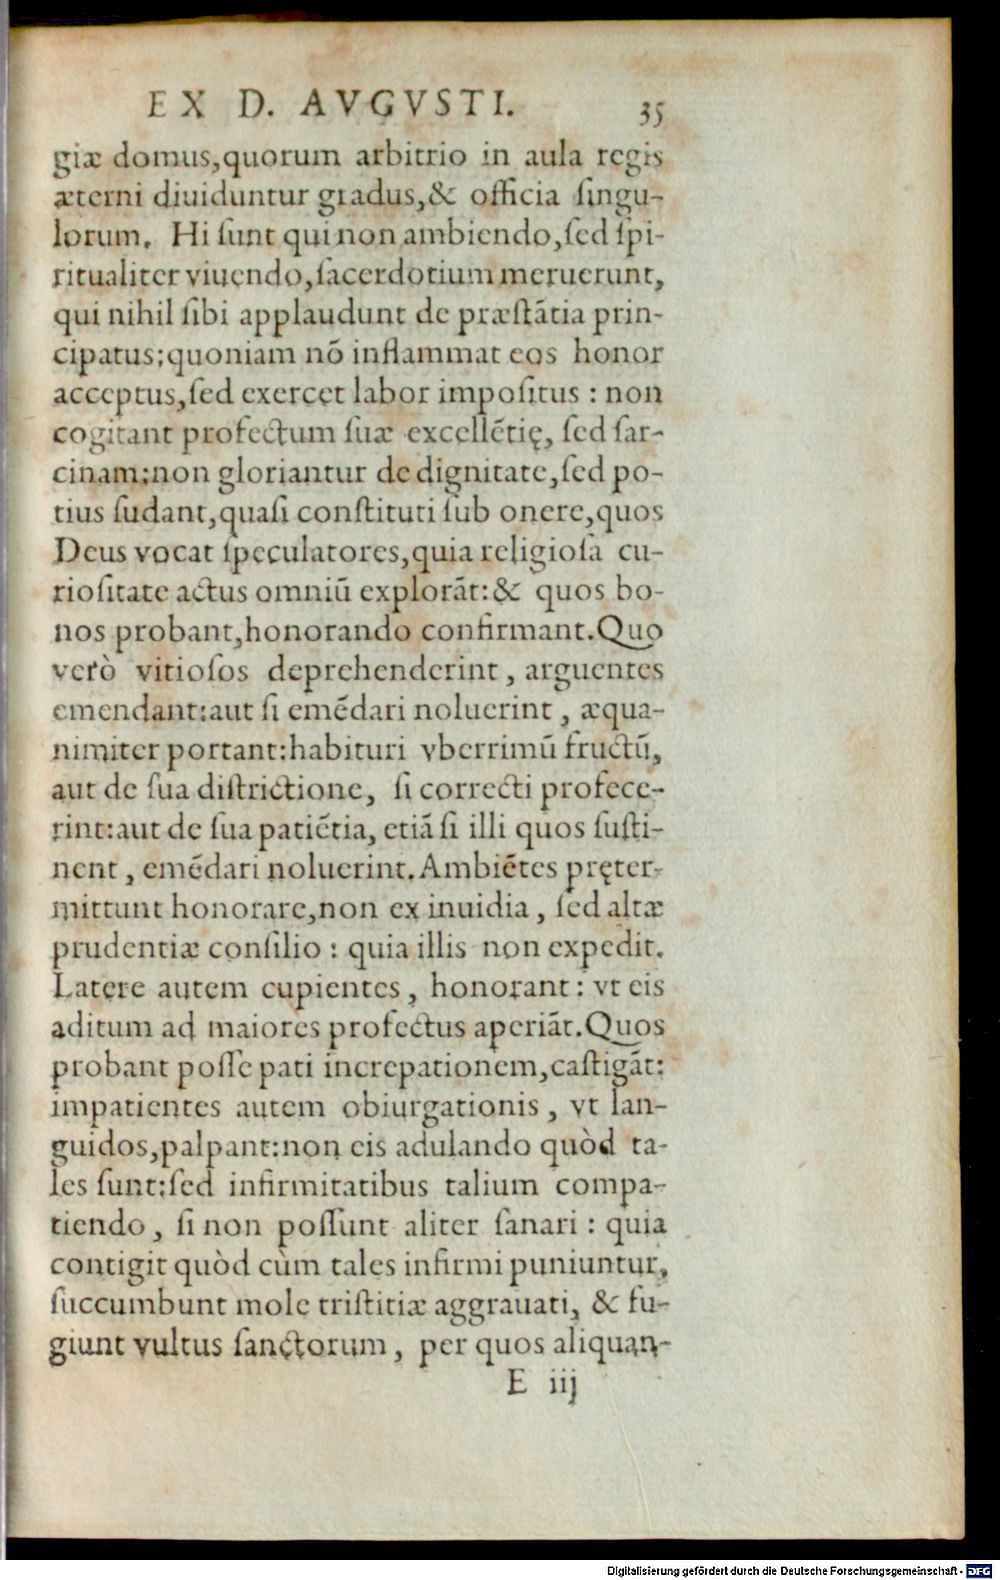 EX D. AVGVSTI. 35
giæ domus,quorum arbitrio in aula regis
æterni diuiduntur gradus,& officia ſingu-
lorum. Hi ſunt qui non ambiendo,ſed ſpi-
ritualiter viuendo,ſacerdotium meruerunt,
qui nihil ſibi applaudunt de præſtãtia prin-
cipatus;quoniam nõ inflammat eos honor
acceptus,ſed exercet labor impoſitus : non
cogitant profectum ſuæ excellẽtię, ſed ſar-
cinam;non gloriantur de dignitate,ſed po-
tius ſudant,quaſi conſtituti ſub onere,quos
Deus vocat ſpeculatores,quia religioſa cu-
rioſitate actus omniũ explorãt:& quos bo-
nos probant,honorando confirmant.Quo
verò vitioſos deprehenderint , arguentes
emendant:aut ſi emẽdari noluerint , æqua-
nimiter portant:habituri vberrimũ fructũ,
aut de ſua diſtrictione, ſi correcti profece-
rint:aut de ſua patiẽtia, etiã ſi illi quos ſuſti-
nent , emẽdari noluerint.Ambiẽtes pręter-
mittunt honorare,non ex inuidia , ſed altæ
prudentiæ conſilio : quia illis non expedit.
Latere autem cupientes , honorant : vt eis
aditum ad maiores profectus aperiãt.Quos
probant poſſe pati increpationem,caſtigãt:
impatientes autem obiurgationis , vt lan-
guidos,palpant:non eis adulando quòd ta-
les ſunt:ſed infirmitatibus talium compa-
tiendo , ſi non poſſunt aliter ſanari : quia
contigit quòd cùm tales infirmi puniuntur,
ſuccumbunt mole triſtitiæ aggrauati, & fu-
giunt vultus ſanctorum , per quos aliquan-
E iij
Digitalisierung gefördert durch die Deutsche Forschungsgemeinschaft - DFG